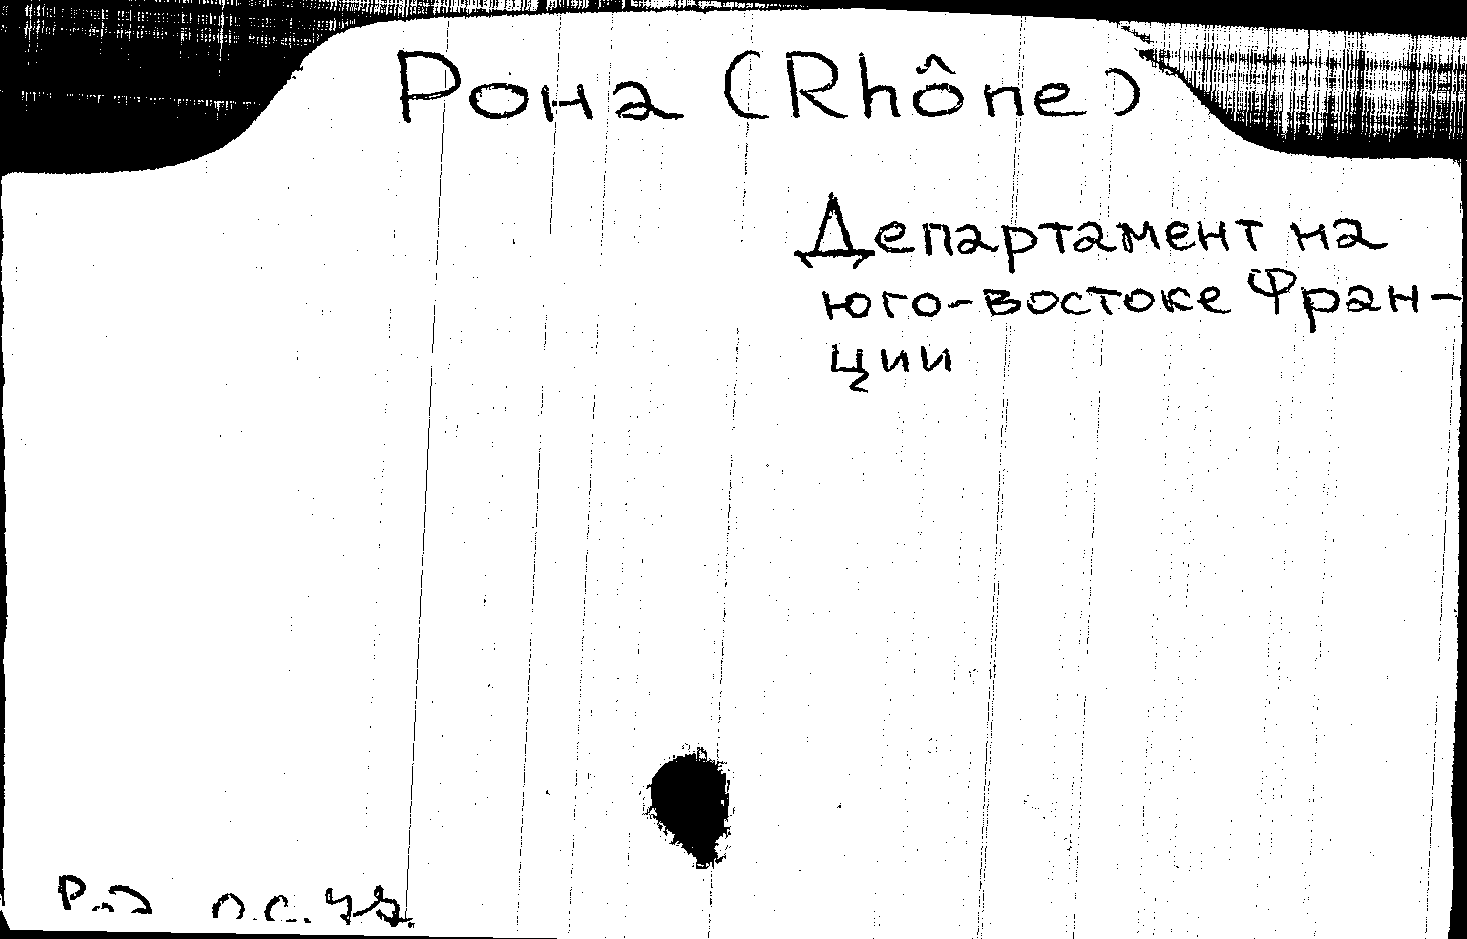 Рона (Rhône)
Департамент на
юго-востоке Фран-
ции